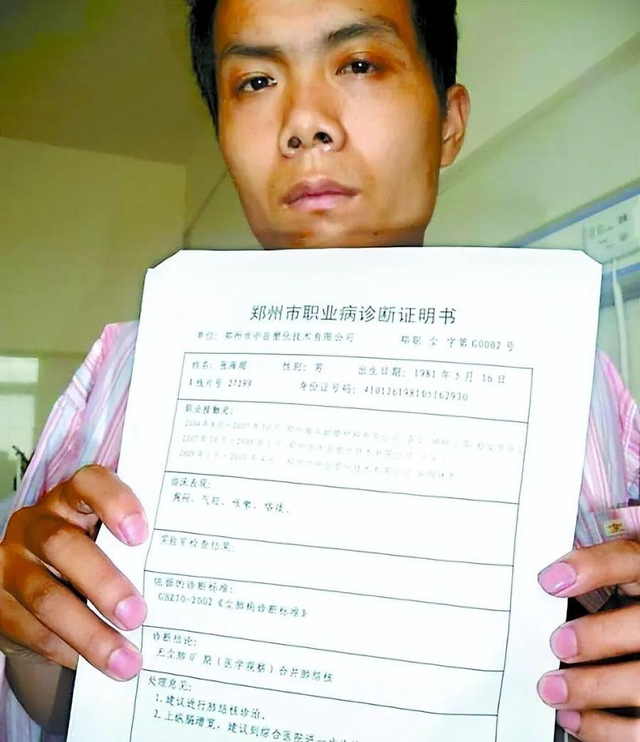 郑州市职业病诊断证明书
单位: 郑州市中岳塑化技术有限公司 郑职 尘 字第G0002号
姓名: 张海超 性别: 男 出生日期: 1981年5月16日
X线片号 27289 身份证号码: 410126198105162930
职业接触史:
临床表现:
胸闷、气短、咳嗽、咯痰。
实验室检查结果:
依据的诊断标准:
GBZ70-2002《尘肺病诊断标准》
诊断结论:
无尘肺 0+ 期(医学观察)合并肺结核
处理意见:
1.建议进行肺结核诊治。
2.上纵膈增宽,建议到综合医院进一步